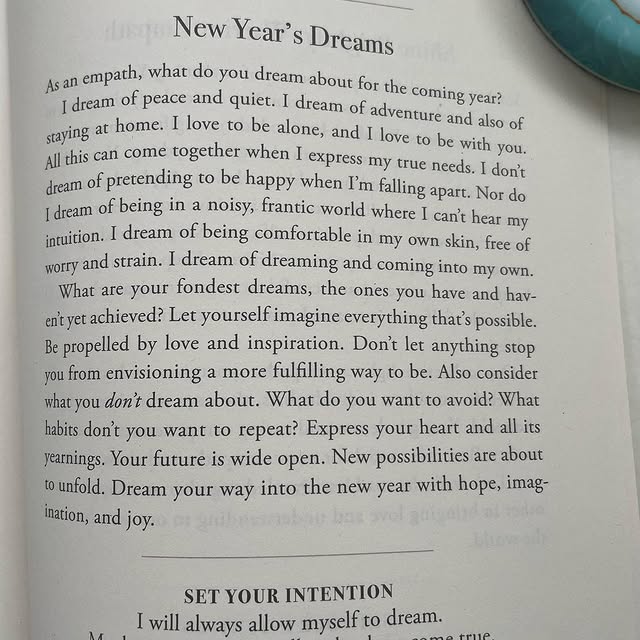 New Year's Dreams
As an empath, what do you dream about for the coming year?
I dream of peace and quiet. I dream of adventure and also of
staying at home. I love to be alone, and I love to be with you.
All this can come together when I express my true needs. I don't
dream of pretending to be happy when I'm falling apart. Nor do
I dream of being in a noisy, frantic world where I can't hear my
intuition. I dream of being comfortable in my own skin, free of
worry and strain. I dream of dreaming and coming into my own.
What are your fondest dreams, the ones you have and hav-
en't yet achieved? Let yourself imagine everything that's possible.
Be propelled by love and inspiration. Don't let anything stop
you from envisioning a more fulfilling way to be. Also consider
what you don't dream about. What do you want to avoid? What
habits don't you want to repeat? Express your heart and all its
yearnings. Your future is wide open. New possibilities are about
to unfold. Dream your way into the new year with hope, imag-
ination, and joy.
SET YOUR INTENTION
I will always allow myself to dream.
come true.